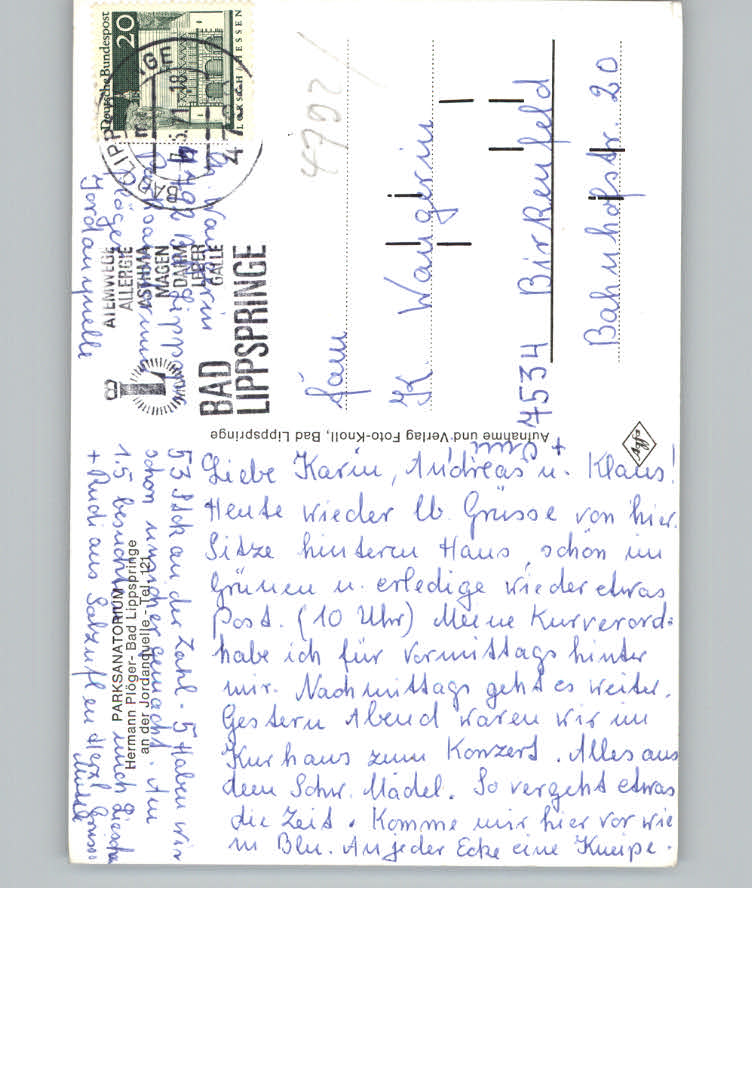 Deutsche Bundespost
20
LORSCH / HESSEN
BAD LIPPSPRINGE
ATEMWEGE
ALLERGIE
ASTHMA
MAGEN
DARM
LEBER
GALLE
BAD
LIPPSPRINGE
479
Parksanatorium
Jordanquelle
4792/
Fam
K. Wangerin
7534 Birkenfeld
Bahnhofstr. 20
Aufnahme und Verlag Foto-Knoll, Bad Lippspringe
PARKSANATORIUM
Hermann Plöger - Bad Lippspringe
an der Jordanquelle - Tel. 121
Liebe Karin, Andreas u. Klaus!
Heute wieder lb. Grüsse von hier.
Sitze hinterm Haus, schön im
Grünen u. erledige wieder etwas
Post. (10 Uhr) Meine Kurverord.
habe ich für Vormittags hinter
mir. Nachmittags geht es weiter.
Gestern Abend waren wir im
Kurhaus zum Konzert. Alles aus
dem Schw. Mädel. So vergeht etwas
die Zeit. Komme mir hier vor wie
in Bln. An jeder Ecke eine Kneipe.
53 Stck an der Zahl - 5 Haben wir
schon unsicher gemacht. Am
1.5 besuchten mich
+ Rudi aus Salzuflen Herzl Grüsse